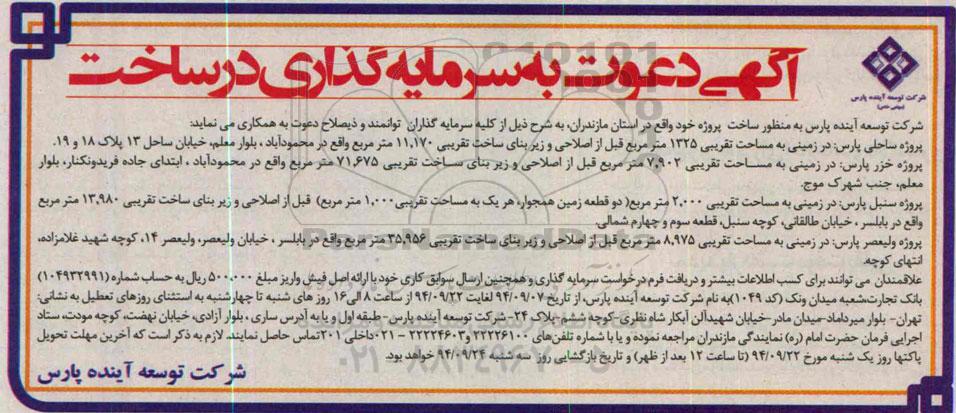 آگهی دعوت به سرمایه گذاری در ساخت
شرکت توسعه آینده پارس
(سهامی خاص)
شرکت توسعه آینده پارس به منظور ساخت پروژه خود واقع در استان مازندران، به شرح ذیل از کلیه سرمایه گذاران توانمند و ذیصلاح دعوت به همکاری می نماید:
پروژه ساحلی پارس: در زمینی به مساحت تقریبی ۱۳۲۵ متر مربع قبل از اصلاحی و زیر بنای ساخت تقریبی ۱۱,۱۷۰ متر مربع واقع در محمودآباد ، بلوار معلم، خیابان ساحل ۱۳ پلاک ۱۸ و ۱۹.
پروژه خزر پارس: در زمینی به مساحت تقریبی ۷,۹۰۲ متر مربع قبل از اصلاحی و زیر بنای ساخت تقریبی ۷۱,۶۷۵ متر مربع واقع در محمودآباد ، ابتدای جاده فریدونکنار، بلوار
معلم، جنب شهرک موج.
پروژه سنبل پارس: در زمینی به مساحت تقریبی ۲,۰۰۰ متر مربع( دو قطعه زمین همجوار، هر یک به مساحت تقریبی ۱,۰۰۰ متر مربع) قبل از اصلاحی و زیر بنای ساخت تقریبی ۱۳,۹۸۰ متر مربع
واقع در بابلسر ، خیابان طالقانی، کوچه سنبل، قطعه سوم و چهارم شمالی.
پروژه ولیعصر پارس: در زمینی به مساحت تقریبی ۸,۹۷۵ متر مربع قبل از اصلاحی و زیر بنای ساخت تقریبی ۳۵,۹۵۶ متر مربع واقع در بابلسر ، خیابان ولیعصر، ولیعصر ۱۴، کوچه شهید غلامزاده،
انتهای کوچه.
علاقمندان می توانند برای کسب اطلاعات بیشتر و دریافت فرم درخواست سرمایه گذاری و همچنین ارسال سوابق کاری خود با ارائه اصل فیش واریز مبلغ ۵۰۰,۰۰۰ ریال به حساب شماره (۱۰۴۹۳۲۹۹۱)
بانک تجارت،شعبه میدان ونک (کد ۱۰۴۹)به نام شرکت توسعه آینده پارس، از تاریخ ۹۴/۰۹/۰۷ لغایت ۹۴/۰۹/۲۲ از ساعت ۸ الی ۱۶ روز های شنبه تا چهارشنبه به استثنای روزهای تعطیل به نشانی:
تهران- بلوار میرداماد-میدان مادر-خیابان شهیدان آبکار شاه نظری-کوچه ششم-پلاک ۲۴-شرکت توسعه آینده پارس-طبقه اول و یا به آدرس ساری ، بلوار آزادی، خیابان نهضت، کوچه مودت، ستاد
اجرایی فرمان حضرت امام (ره) نمایندگی مازندران مراجعه نموده و یا با شماره تلفن های ۲۲۲۲۶۱۰۰ و ۲۲۲۲۴۶۰۳ - ۰۲۱داخلی ۲۰۱تماس حاصل نمایند. لازم به ذکر است که آخرین مهلت تحویل
پاکتها روز یک شنبه مورخ ۹۴/۰۹/۲۲ (تا ساعت ۱۲ بعد از ظهر) و تاریخ بازگشایی روز سه شنبه ۹۴/۰۹/۲۴ خواهد بود.
شرکت توسعه آینده پارس
ParsNamadData
۰۲۱-۸۸۳۴۹۶۷۰